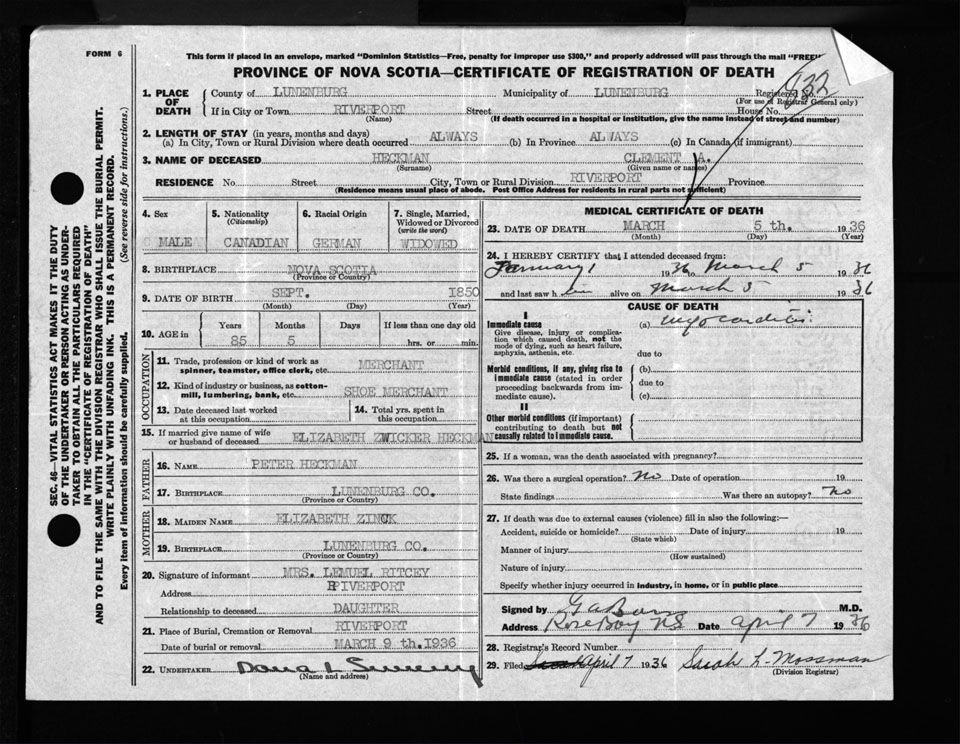 FORM 6
This form if placed in an envelope, marked "Dominion Statistics—Free, penalty for improper use $300," and properly addressed will pass through the mail "FREE"
PROVINCE OF NOVA SCOTIA—CERTIFICATE OF REGISTRATION OF DEATH
SEC. 46—VITAL STATISTICS ACT MAKES IT THE DUTY
OF THE UNDERTAKER OR PERSON ACTING AS UNDER-
TAKER TO OBTAIN ALL THE PARTICULARS REQUIRED
IN THE "CERTIFICATE OF REGISTRATION OF DEATH"
AND TO FILE THE SAME WITH THE DIVISION REGISTRAR WHO SHALL ISSUE THE BURIAL PERMIT.
WRITE PLAINLY WITH UNFADING INK. THIS IS A PERMANENT RECORD.
Every item of information should be carefully supplied. (See reverse side for instructions.)
1. PLACE OF DEATH
County of LUNENBURG Municipality of LUNENBURG Registered No. 932
(For use of Registrar General only)
If in City or Town RIVERPORT Street House No.
(Name) (If death occurred in a hospital or institution, give the name instead of street and number)
2. LENGTH OF STAY (in years, months and days)
(a) In City, Town or Rural Division where death occurred ALWAYS (b) In Province ALWAYS (c) In Canada (if immigrant)
3. NAME OF DECEASED HECKMAN CLEMENT A.
(Surname) (Given name or names)
RESIDENCE No. Street City, Town or Rural Division RIVERPORT Province
(Residence means usual place of abode. Post Office Address for residents in rural parts not sufficient)
4. Sex MALE
5. Nationality (Citizenship) CANADIAN
6. Racial Origin GERMAN
7. Single, Married, Widowed or Divorced (write the word) WIDOWED
8. BIRTHPLACE NOVA SCOTIA
(Province or Country)
9. DATE OF BIRTH SEPT. 1850
(Month) (Day) (Year)
10. AGE in Years Months Days If less than one day old
85 5 hrs. or min.
OCCUPATION
11. Trade, profession or kind of work as spinner, teamster, office clerk, etc. MERCHANT
12. Kind of industry or business, as cotton-mill, lumbering, bank, etc. SHOE MERCHANT
13. Date deceased last worked at this occupation
14. Total yrs. spent in this occupation
15. If married give name of wife or husband of deceased ELIZABETH ZWICKER HECKMAN
FATHER
16. NAME PETER HECKMAN
17. BIRTHPLACE LUNENBURG CO.
(Province or Country)
MOTHER
18. MAIDEN NAME ELIZABETH ZINCK
19. BIRTHPLACE LUNENBURG CO.
(Province or Country)
20. Signature of informant MRS. LEMUEL RITCEY
Address RIVERPORT
Relationship to deceased DAUGHTER
21. Place of Burial, Cremation or Removal RIVERPORT
Date of burial or removal MARCH 9 th. 1936
22. UNDERTAKER
(Name and address)
MEDICAL CERTIFICATE OF DEATH
23. DATE OF DEATH MARCH 5 th. 1936
(Month) (Day) (Year)
24. I HEREBY CERTIFY that I attended deceased from:
January 1 1936 to March 5 1936
and last saw him alive on March 5 1936
CAUSE OF DEATH
I
Immediate cause (a) Myocarditis.
Give disease, injury or complication which caused death, not the mode of dying, such as heart failure, asphyxia, asthenia, etc.
due to
Morbid conditions, if any, giving rise to immediate cause (stated in order proceeding backwards from immediate cause).
(b)
due to
(c)
II
Other morbid conditions (if important) contributing to death but not causally related to immediate cause.
25. If a woman, was the death associated with pregnancy?
26. Was there a surgical operation? No Date of operation 19
State findings Was there an autopsy? No
27. If death was due to external causes (violence) fill in also the following:—
Accident, suicide or homicide? Date of injury 19
(State which)
Manner of injury
(How sustained)
Nature of injury
Specify whether injury occurred in industry, in home, or in public place
Signed by M.D.
Address Rose Bay NS Date April 7 1936
28. Registrar's Record Number
29. Filed April 7 1936 Sarah L. Mossman
(Division Registrar)